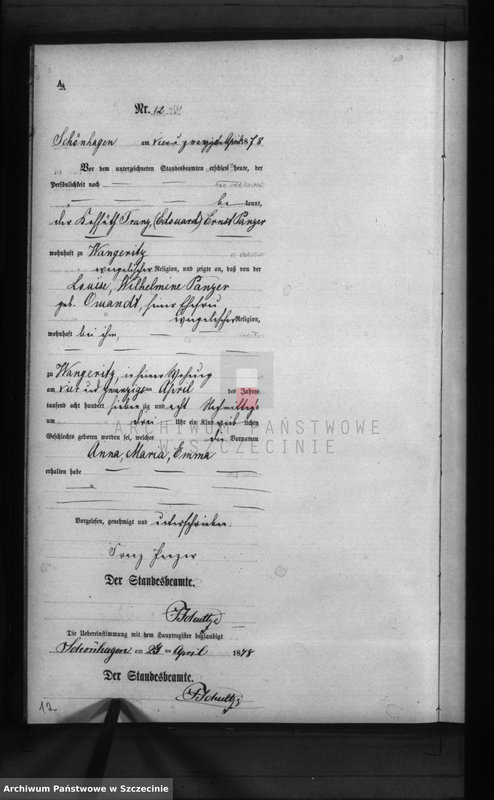 A.
Nr. 12
Schönhagen am vier u zwanzigsten April 1878
Vor dem unterzeichneten Standesbeamten erschien heute, der
Persönlichkeit nach
be kannt,
der Kossäth Franz, (Edouard) Ernst Panzer
wohnhaft zu Wangeritz
evangelischer Religion, und zeigte an, daß von der
Louise, Wilhelmine Panzer
geb. Omandt, seiner Ehefrau
evangelischer Religion,
wohnhaft bei ihm,
zu Wangeritz, in seiner Wohnung
am vier und zwanzigsten April des Jahres
tausend acht hundert siebenzig und acht Nachmittags
um drei Uhr ein Kind weiblichen
Geschlechts geboren worden sei, welches die Vornamen
Anna, Maria, Emma
erhalten habe
Vorgelesen, genehmigt und unterschrieben
Franz Panzer
Der Standesbeamte.
Schultze
Die Uebereinstimmung mit dem Hauptregister beglaubigt
Schönhagen am 24 ten April 1878
Der Standesbeamte.
Schultze
12
ARCHIWUM PAŃSTWOWE
W SZCZECINIE
Archiwum Państwowe w Szczecinie